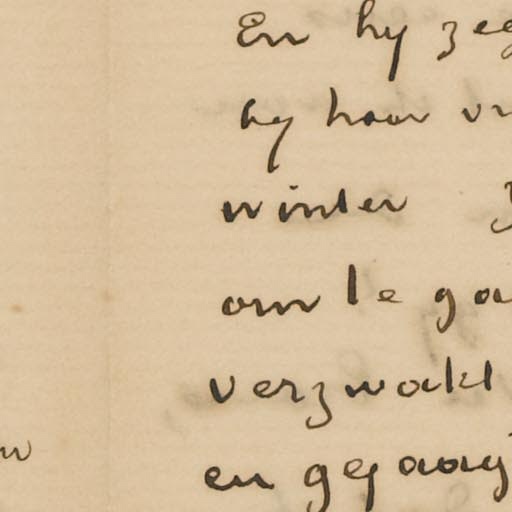 En hy zeg
by haar vr
winter
om te ga
verzwakt
en gejaag